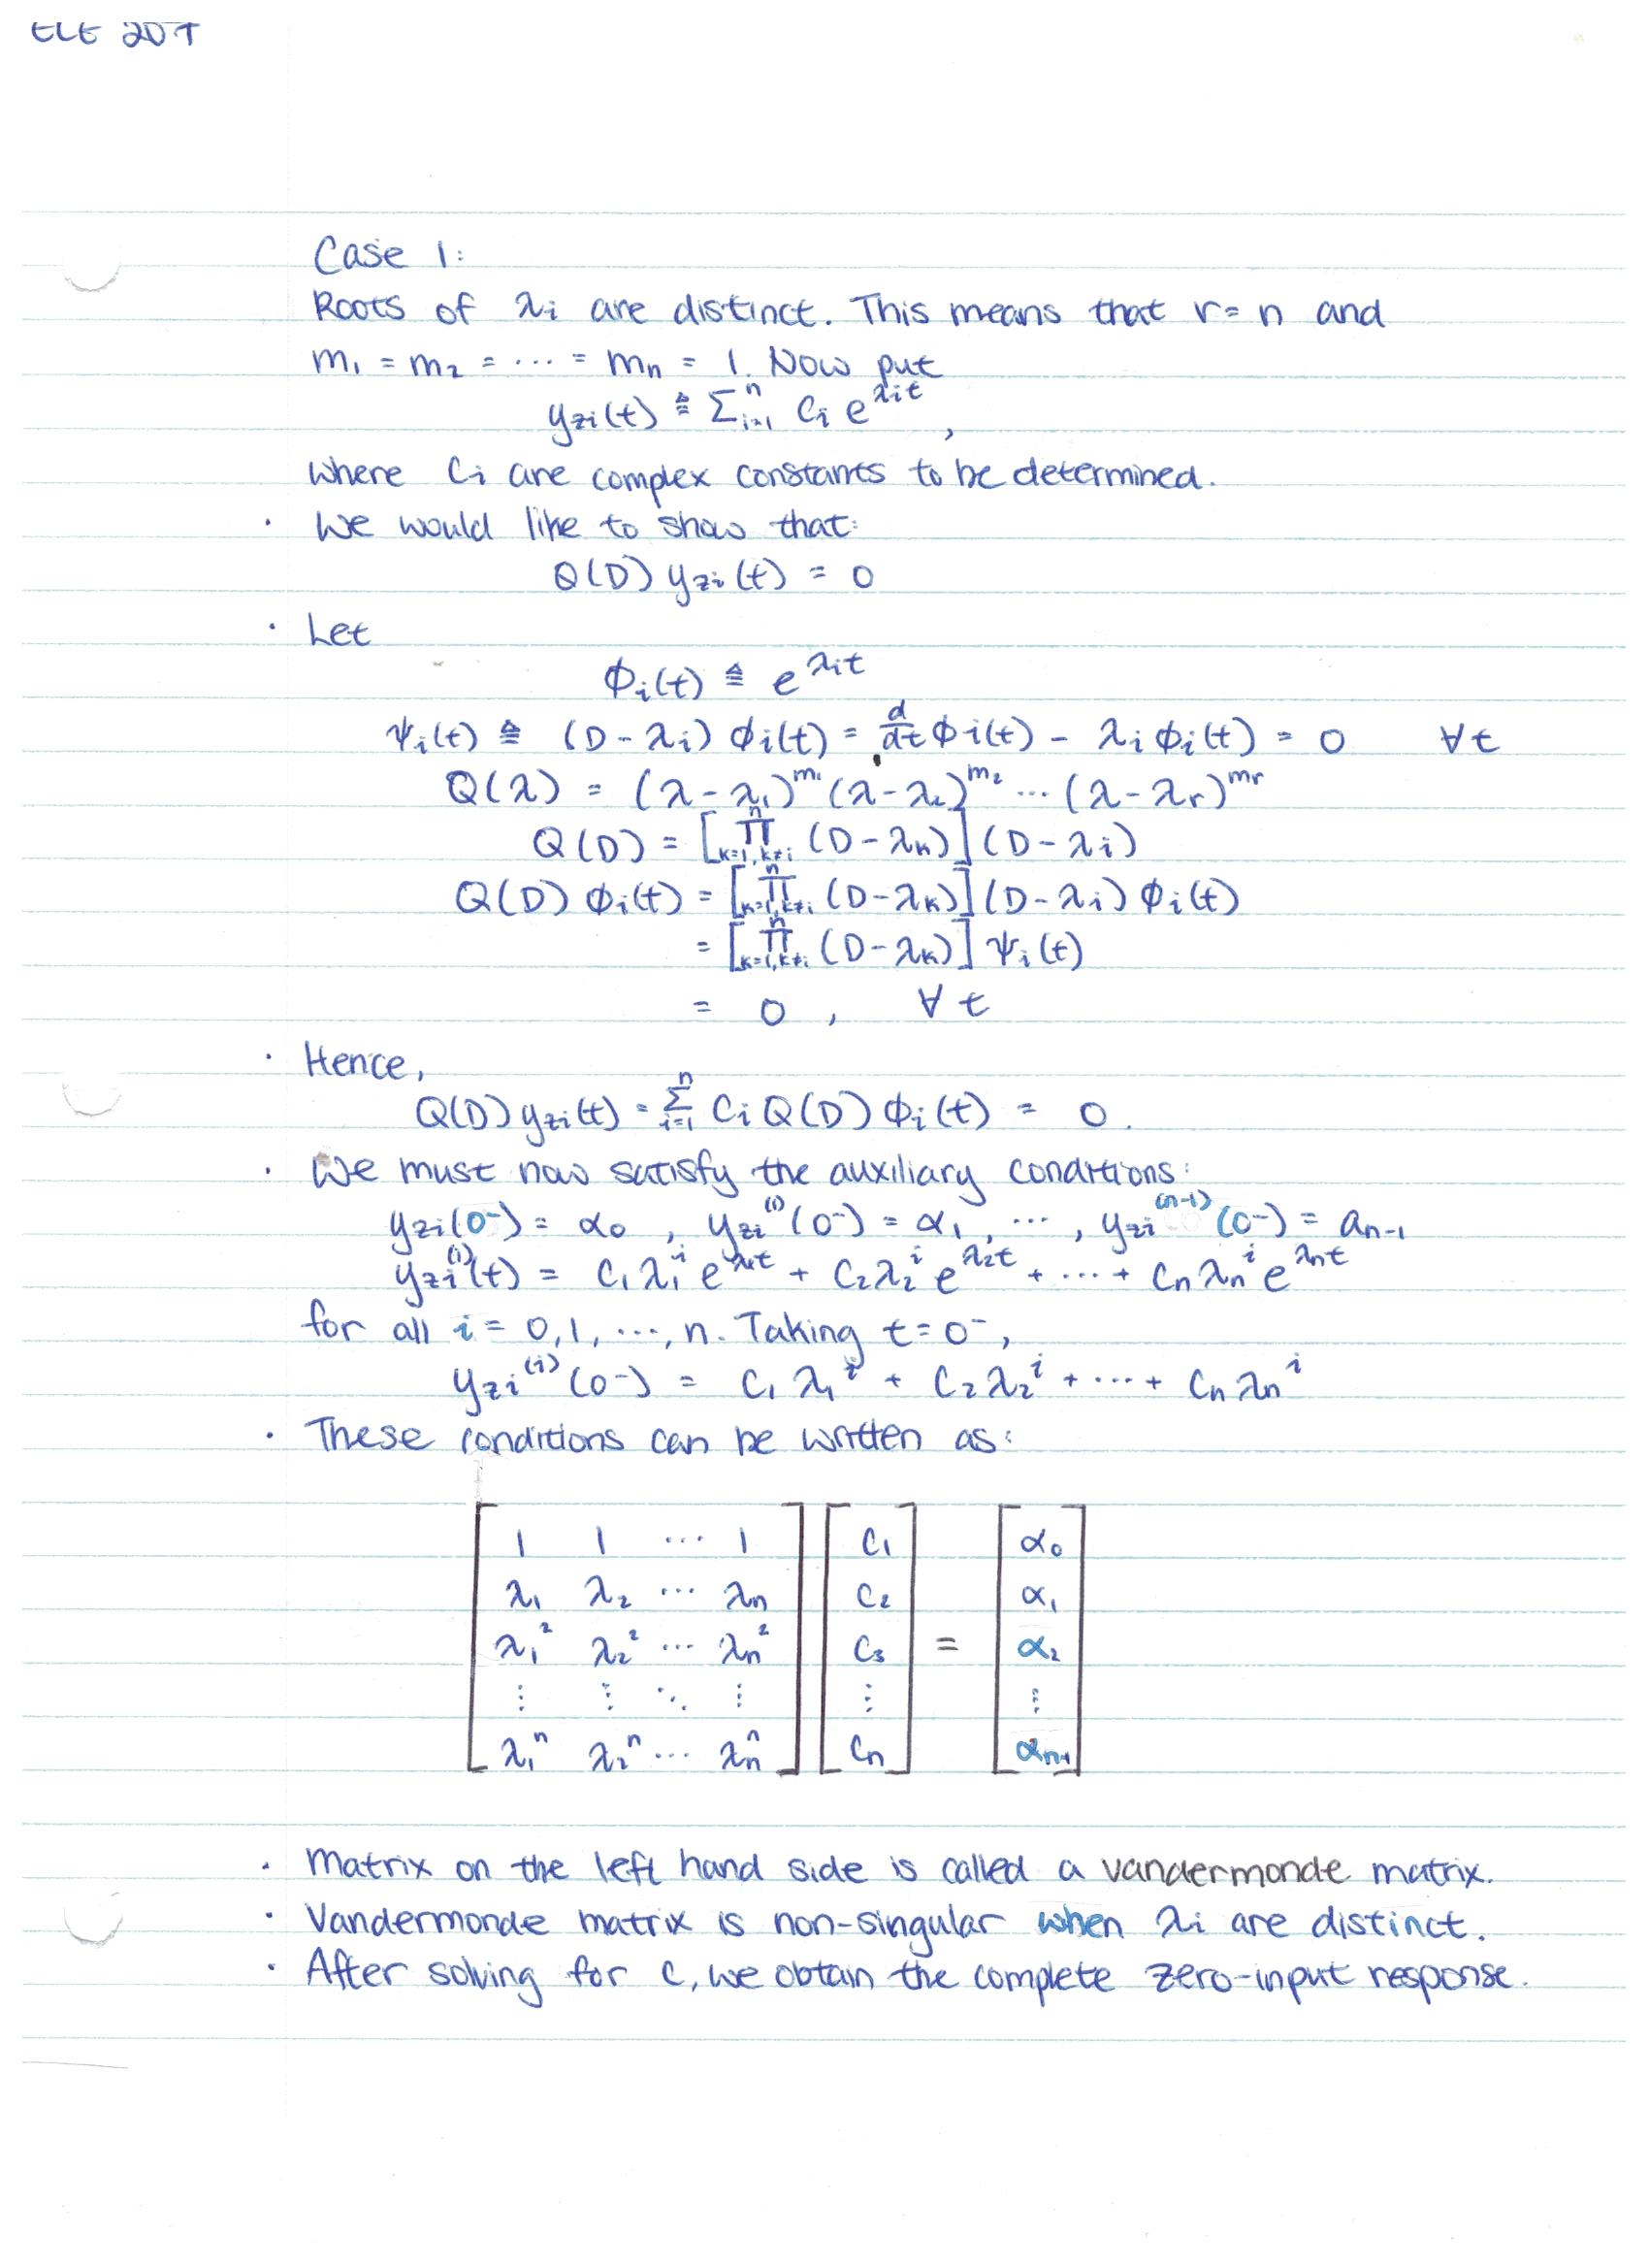 ELE 207
Case 1:
Roots of λi are distinct. This means that r = n and
m₁ = m₂ = ... = mn = 1. Now put
yzi(t) ≜ Σᵢ₌₁ⁿ Ci e^λit,
where Ci are complex constants to be determined.
· We would like to show that:
Q(D) yzi(t) = 0
· Let
Φi(t) ≜ e^λit
Ψi(t) ≜ (D - λi) Φi(t) = d/dt Φi(t) - λi Φi(t) = 0 ∀t
Q(λ) = (λ - λ₁)^m₁ (λ - λ₂)^m₂ ... (λ - λr)^mr
Q(D) = [∏ⁿ k=1, k≠i (D - λk)] (D - λi)
Q(D) Φi(t) = [∏ⁿ k=1, k≠i (D - λk)] (D - λi) Φi(t)
= [∏ⁿ k=1, k≠i (D - λk)] Ψi(t)
= 0, ∀t
· Hence,
Q(D) yzi(t) = Σⁿ i=1 Ci Q(D) Φi(t) = 0.
· We must now satisfy the auxiliary conditions:
yzi(0⁻) = α₀, yzi^(1)(0⁻) = α₁, ..., yzi^(n-1)(0⁻) = an-1
yzi^(i)(t) = C₁λ₁^i e^λ₁t + C₂λ₂^i e^λ₂t + ... + Cnλn^i e^λnt
for all i = 0, 1, ..., n. Taking t = 0⁻,
yzi^(i)(0⁻) = C₁λ₁^i + C₂λ₂^i + ... + Cnλn^i
· These conditions can be written as:
[1 1 ... 1] [C₁] [α₀]
[λ₁ λ₂ ... λn] [C₂] [α₁]
[λ₁² λ₂² ... λn²] [C₃] = [α₂]
[⋮ ⋮ ⋱ ⋮] [⋮] [⋮]
[λ₁ⁿ λ₂ⁿ ... λnⁿ] [Cn] [αn-1]
· Matrix on the left hand side is called a vandermonde matrix.
· Vandermonde matrix is non-singular when λi are distinct.
· After solving for C, we obtain the complete zero-input response.